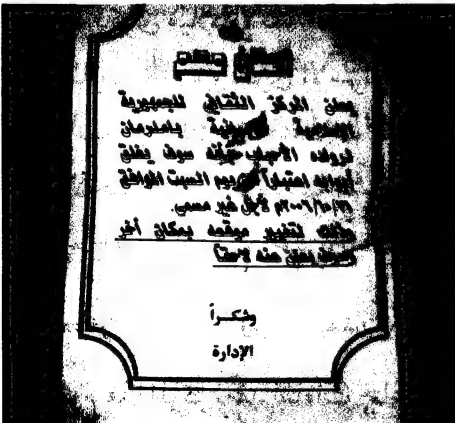 يعلن المركز الثقافي للجمهورية
الإسلامية الإيرانية بامدرمان
لرواده الأحباب بأنه سوف يغلق
أبوابه اعتباراً من يوم السبت الموافق
لأجل غير مسمى.
وذلك لتغيير موقعه بمكان آخر
سوف يعلن عنه لاحقاً
وشكراً
الإدارة